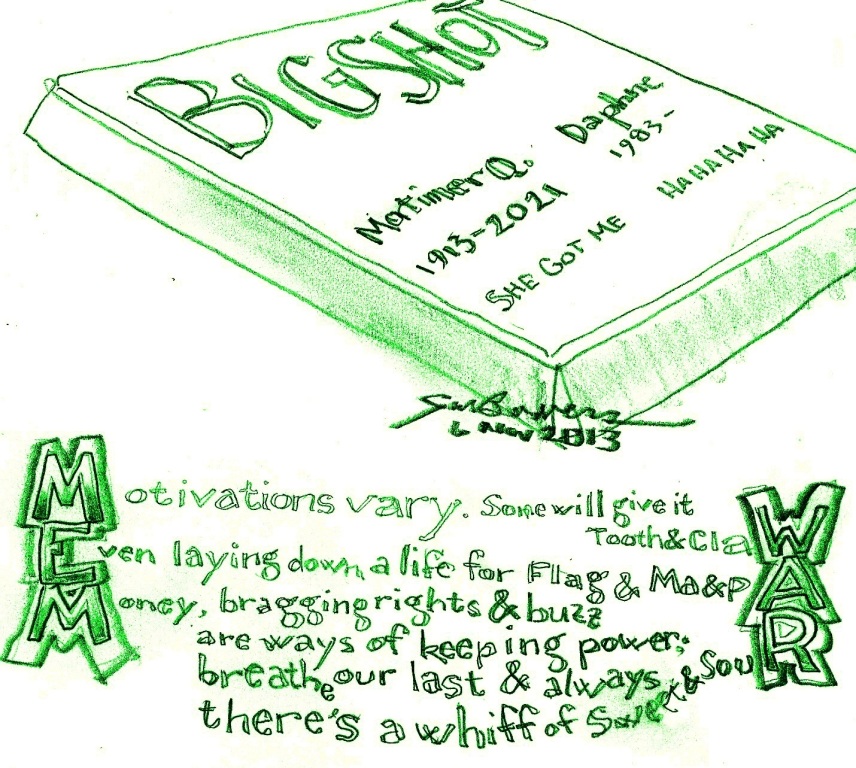 BIG SHOT
Mortimer Q. Daphne
1913-2021 1983-
SHE GOT ME HA HA HA HA
6 Nov 2013
Motivations vary. Some will give it
Tooth & ClaW
Even laying down a life for Flag & Ma&pA
Money, bragging rights & buzz
are ways of keeping power;
breathe our last & always
there's a whiff of Sweet & SouR